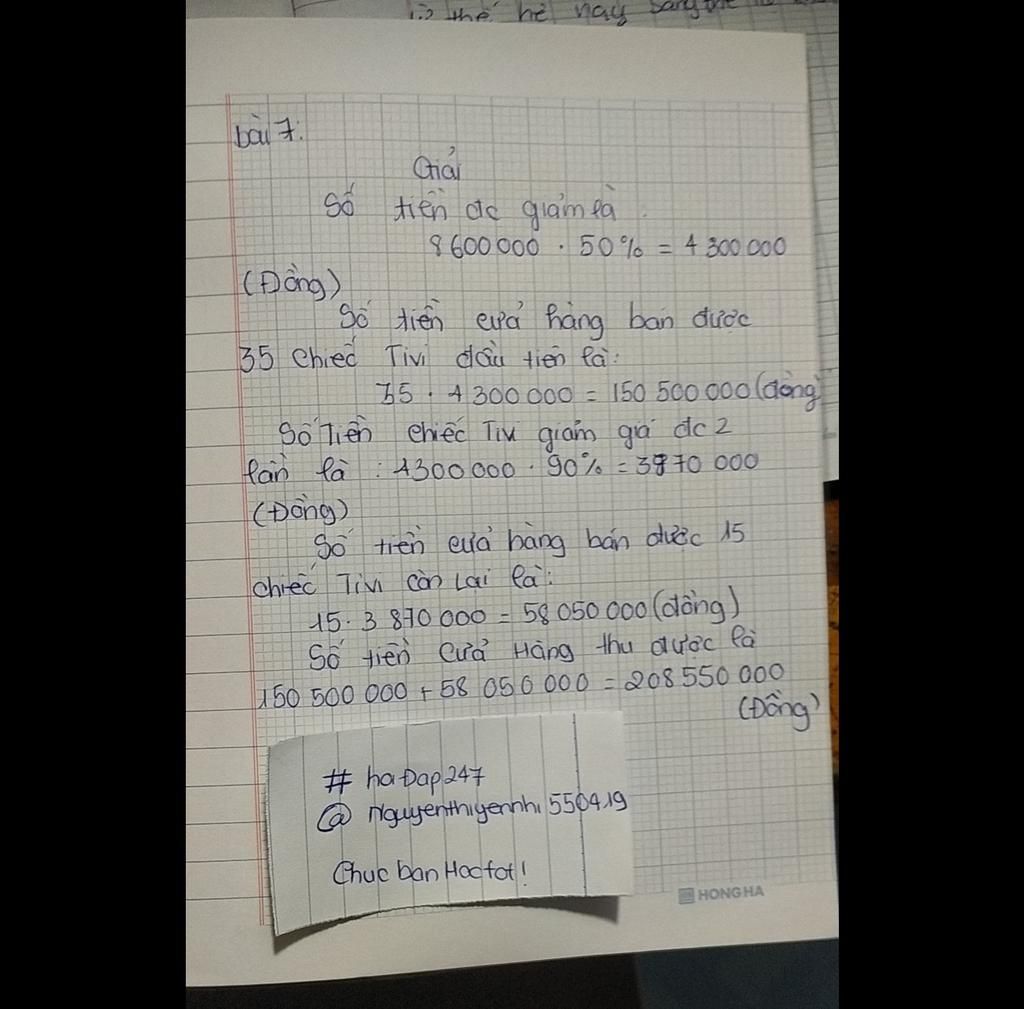 thế hệ nay sang
bài 7:
Giải
Số tiền đc giảm là:
8600000 . 50% = 4 300 000
(Đồng)
Số tiền cửa hàng bán được
35 chiếc Tivi đầu tiên là:
35 . 4 300 000 = 150 500 000 (đồng)
Số Tiền chiếc Tivi giảm giá đc 2
lần là : 4300000 . 90% = 3870 000
(Đồng)
Số tiền cửa hàng bán được 15
chiếc Tivi còn lại là:
15. 3 870 000 = 58 050 000 (đồng)
Số tiền Cửa Hàng thu được là
150 500 000 + 58 050 000 = 208 550 000
(Đồng)
# hoiĐap247
@ Nguyenthiyennhi550419
Chuc ban Hoc tot!
HONG HA